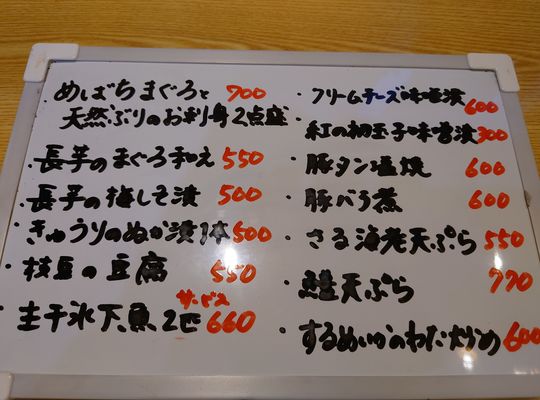 ・めばちまぐろと 700
天然ぶりのお刺身2点盛
・長芋のまぐろ和え 550
・長芋の梅しそ漬 500
・きゅうりのぬか漬1本 500
・枝豆の豆腐 550
サービス
・生干氷下魚2匹 660
・クリームチーズ味噌漬 600
・紅の初玉子味噌漬 300
・豚タン塩焼 600
・豚バラ煮 600
・さる海老天ぷら 550
・鮭天ぷら 770
・するめいかのわた炒め 600